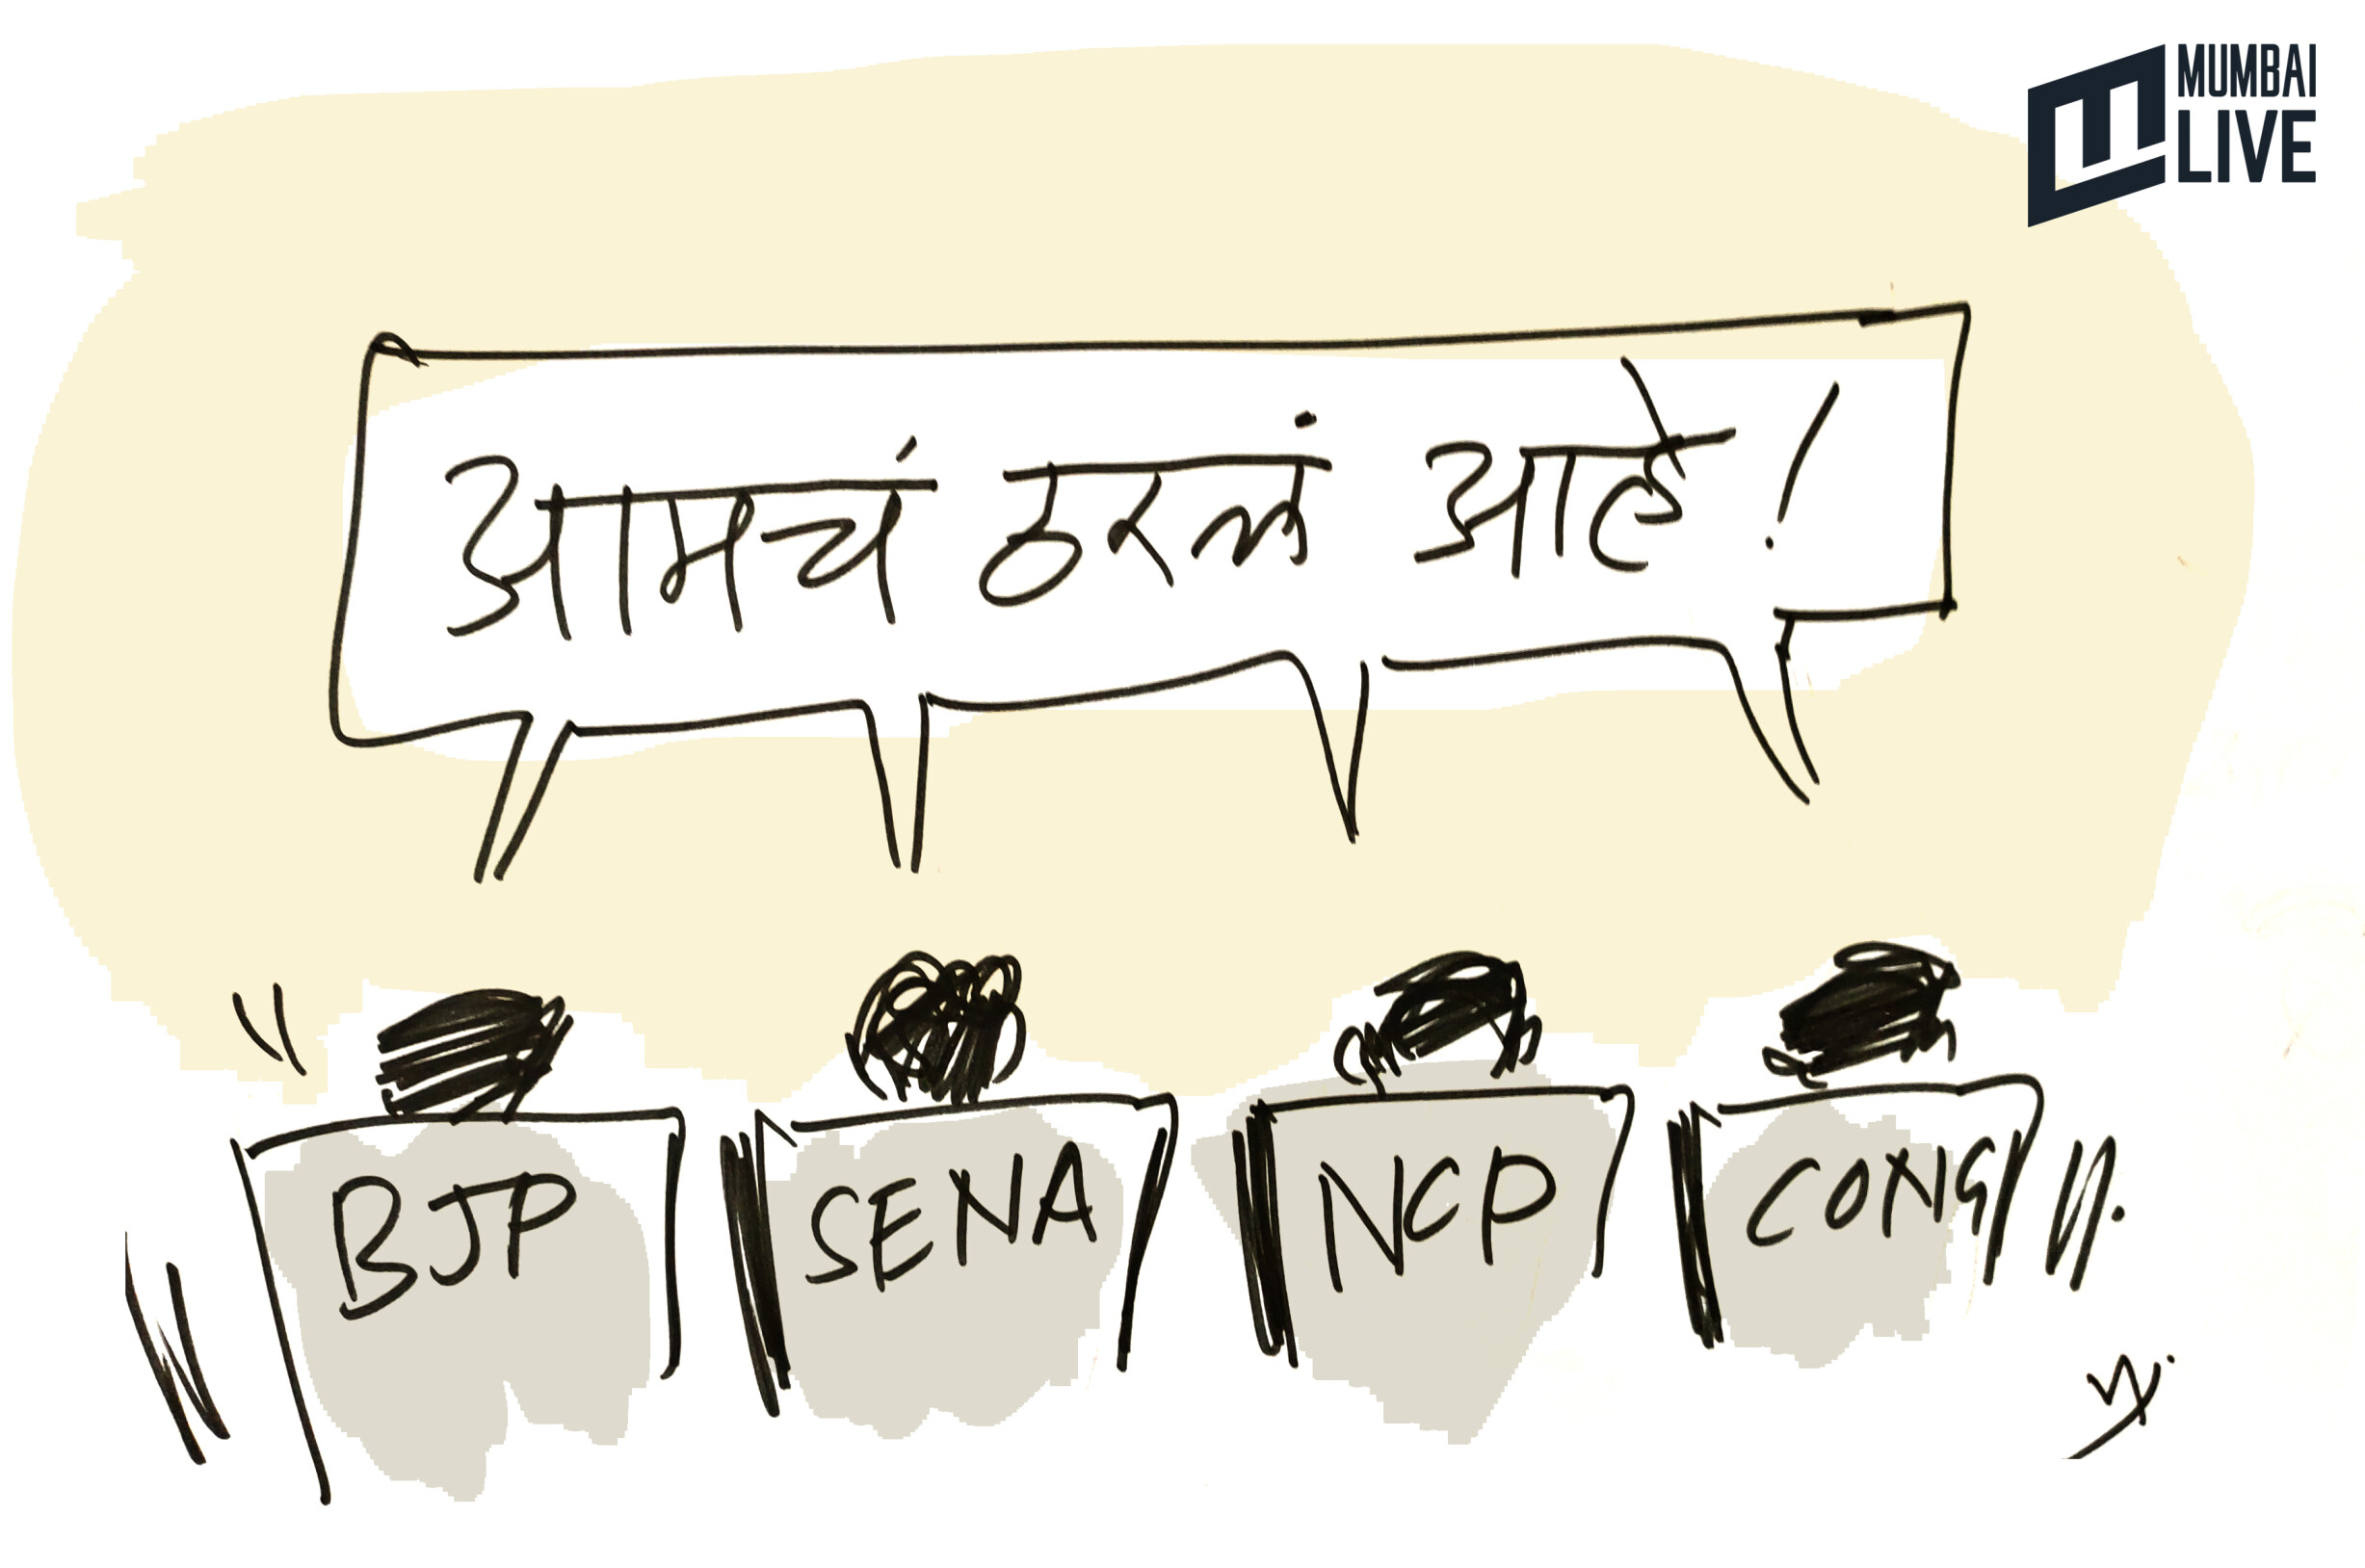 MUMBAI
LIVE
आमचं ठरलं आहे!
BJP
SENA
NCP
CONG